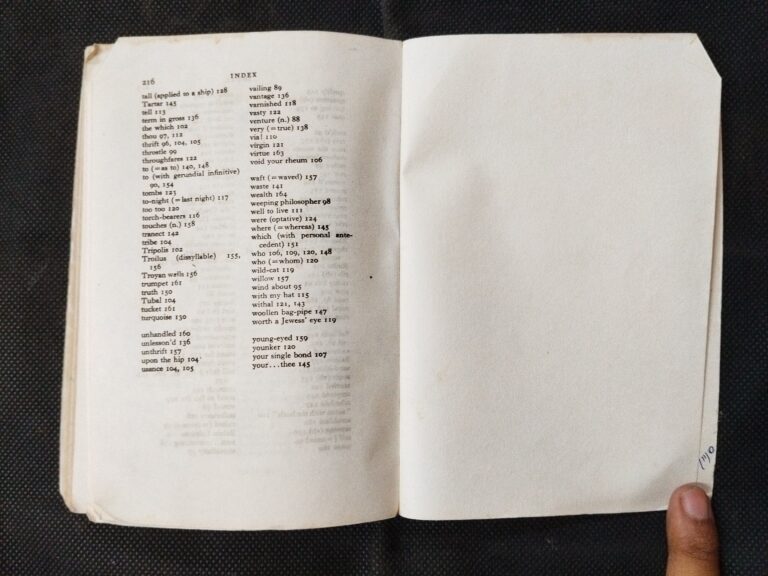 216
INDEX
tall (applied to a ship) 128
Tartar 145
tell 113
term in gross 136
the which 102
thou 97, 112
thrift 96, 104, 105
throstle 99
throughfares 122
to (=as to) 140, 148
to (with gerundial infinitive)
90, 154
tombs 123
to-night (=last night) 117
too too 120
torch-bearers 116
touches (n.) 158
tranect 142
tribe 104
Tripolis 102
Troilus (dissyllable) 155,
156
Troyan walls 156
trumpet 161
truth 150
Tubal 104
tucket 161
turquoise 130
unhandled 160
unlesson'd 136
unthrift 157
upon the hip 104
usance 104, 105
vailing 89
vantage 136
varnished 118
vasty 122
venture (n.) 88
very (=true) 138
via! 110
virgin 121
virtue 163
void your rheum 106
waft (=waved) 157
waste 141
wealth 164
weeping philosopher 98
well to live 111
were (optative) 124
where (=whereas) 145
which (with personal ante-
cedent) 151
who 106, 109, 120, 148
who (=whom) 120
wild-cat 119
willow 157
wind about 95
with my hat 115
withal 121, 143
woollen bag-pipe 147
worth a Jewess' eye 119
young-eyed 159
younker 120
your single bond 107
your...thee 145